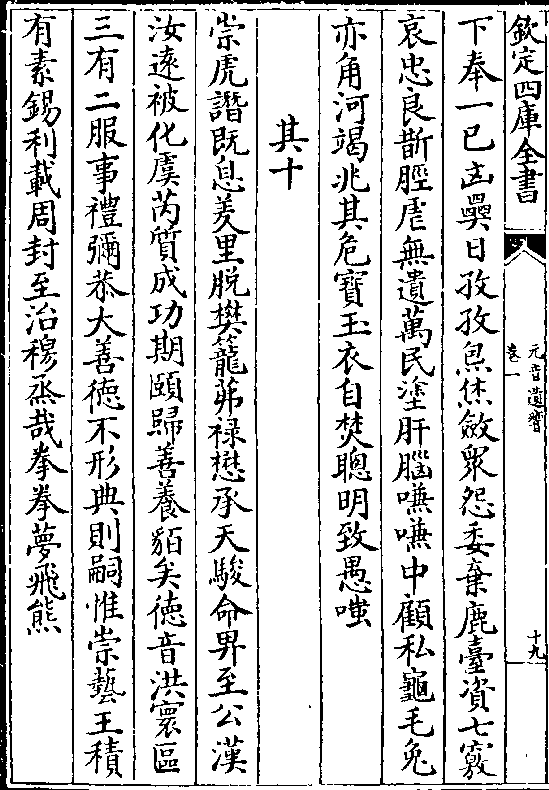 欽定四庫全書
元音遺響
卷一
十九
下奉一已凶釁日孜孜炰烋斂衆怨委棄鹿臺資七竅
哀忠良斮脛虐無遺萬民塗肝腦嗛嗛中顧私龜毛兔
亦角河竭兆其危寶玉衣自焚聰明致愚嗤
其十
崇虎譖既息羑里脱樊籠茀禄懋承天駿命畀至公漢
汝逺被化虞芮質成功期頤歸善養貊矣徳音洪寰區
三有二服事禮彌恭大善徳不形典則嗣惟崇藝王積
有素錫利載周封至治穆烝哉拳拳夢飛熊